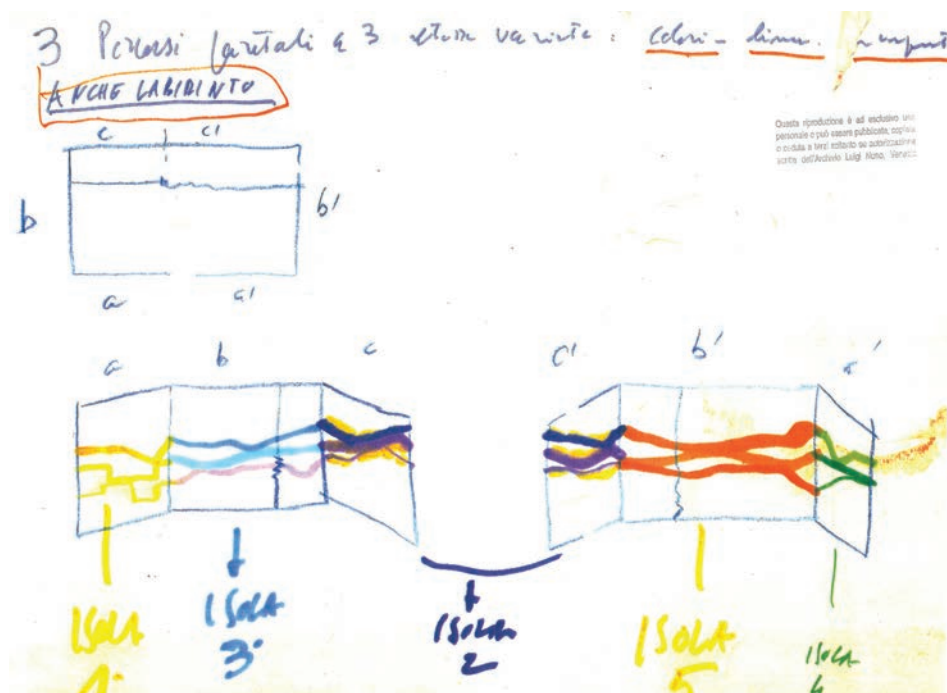 3 Percorsi a 3 variate: colori - linee.
ANCHE LABIRINTO
Questa riproduzione è ad esclusivo uso
personale e può essere pubblicata, copiata
o ceduta a terzi soltanto se autorizzazione
scritta dell'Archivio Luigi Nono, Venezia
c c'
b b'
a a'
a b c c' b' a'
ISOLA ISOLA ISOLA ISOLA ISOLA
3° 2 5 4